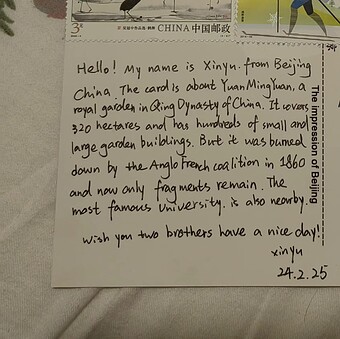 3元
CHINA 中国邮政
Hello! My name is Xinyu. from Beijing
China The card is about YuanMingYuan, a
royal garden in Qing Dynasty of China. It covers
320 hectares and has hundreds of small and
large garden buildings. But it was burned
down by the Anglo French coalition in 1860
and now only fragments remain. The
most famous University. is also nearby.
wish you two brothers have a nice day!
xinyu
24.2.25
The impression of Beijing